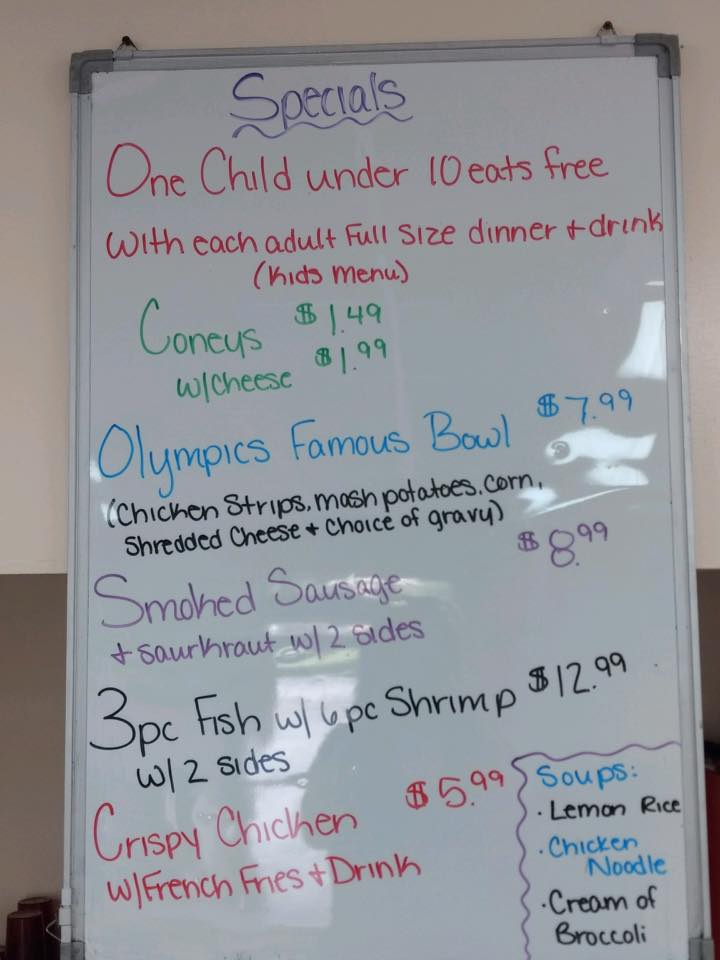 Specials
One Child under 10 eats free
With each adult Full Size dinner + drink
(Kids menu)
Coneys $1.49
w/cheese $1.99
Olympics Famous Bowl $7.99
(Chicken Strips, mash potatoes, corn,
Shredded Cheese + Choice of gravy)
Smoked Sausage $8.99
+ saurkraut w/ 2 sides
3pc Fish w/ 6pc Shrimp $12.99
w/ 2 sides
Crispy Chicken $5.99
w/French Fries + Drink
Soups:
· Lemon Rice
· Chicken
Noodle
· Cream of
Broccoli